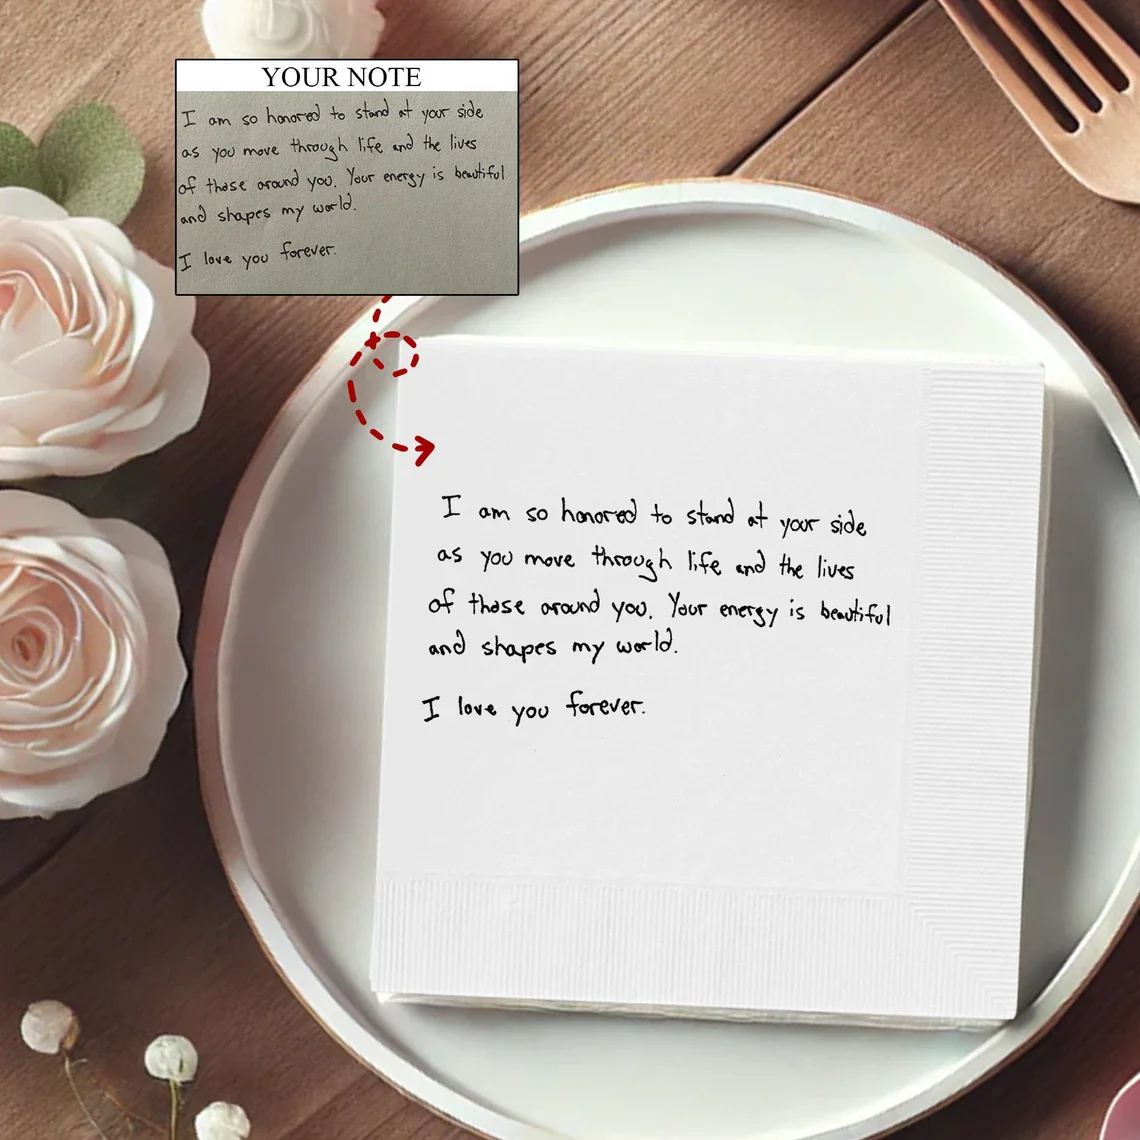 YOUR NOTE
I am so honored to stand at your side
as you move through life and the lives
of those around you. Your energy is beautiful
and shapes my world.
I love you forever.
I am so honored to stand at your side
as you move through life and the lives
of those around you. Your energy is beautiful
and shapes my world.
I love you forever.